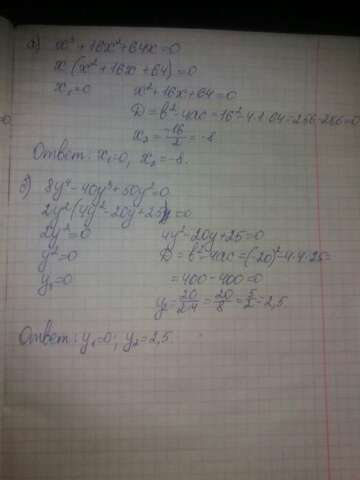 а) x³+16x²+64x=0
x(x²+16x+64)=0
x₁=0 x²+16x+64=0
D=b²-4ac=16²-4·1·64=256-256=0
x₂=-16/2=-8
Ответ: x₁=0, x₂=-8.
б) 8y⁴-40y³+50y²=0
2y²(4y²-20y+25)=0
2y²=0 4y²-20y+25=0
y²=0 D=b²-4ac=(-20)²-4·4·25=
y₁=0 =400-400=0
y₂=20/2·4=20/8=5/2=2,5
Ответ: y₁=0; y₂=2,5.